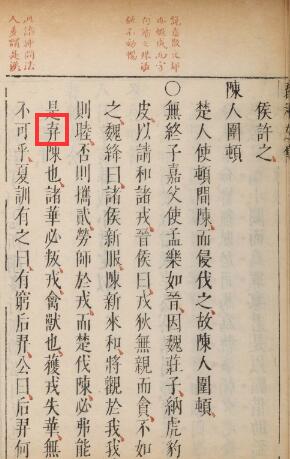 侯許之
陳人圍頓
楚人使頓間陳而侵伐之故陳人圍頓
○無終子嘉父使孟樂如晉因魏莊子納虎豹
皮以請和諸戎晉侯曰戎狄無親而貪不如
之魏絳曰諸侯新服陳新來和將觀於我我
則睦否則攜貳勞師於戎而楚伐陳必弗能
是弃陳也諸華必叛戎禽獸也獲戎失華無
不可乎夏訓有之曰有窮后羿公曰后羿何